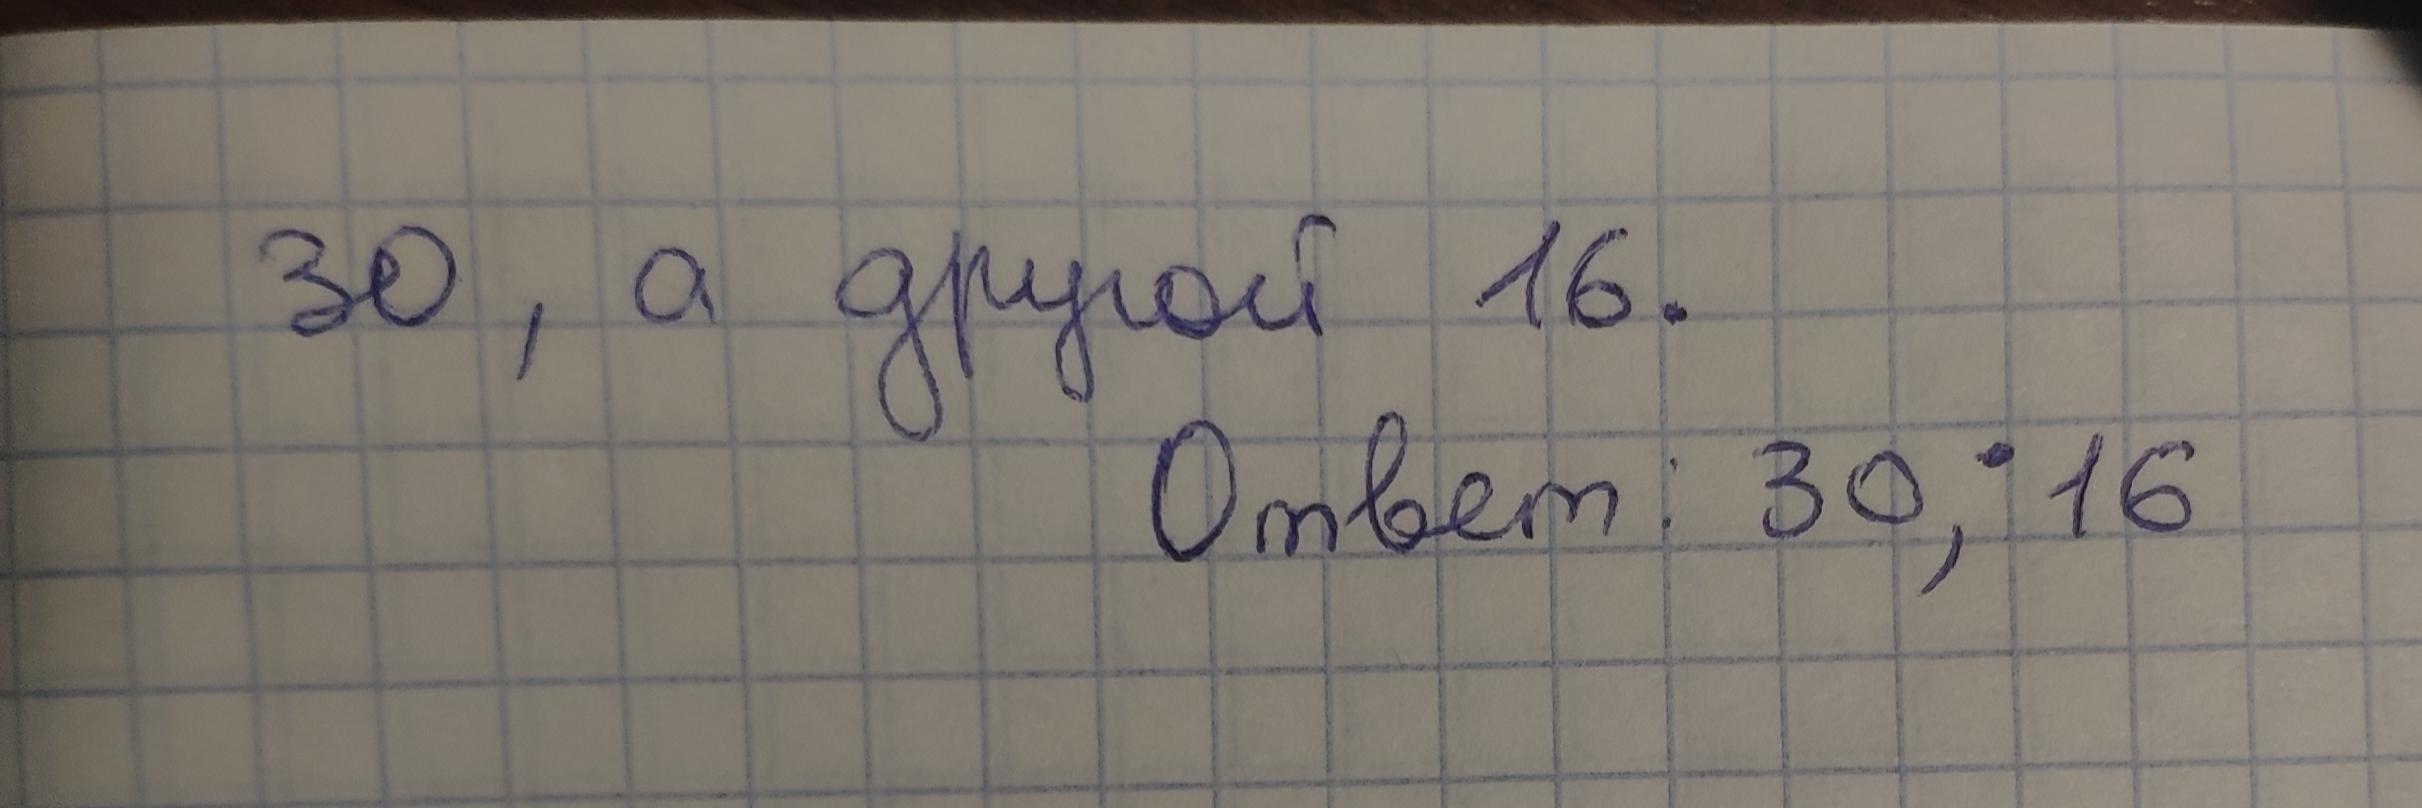 30, а другой 16.
Ответ: 30; 16